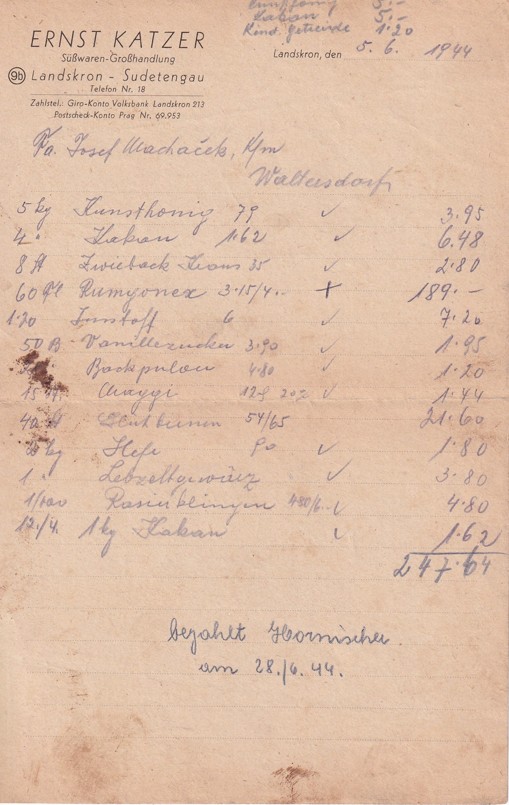 5.-
Kakau 5.-
Kind. getreide 1.20
ERNST KATZER
Süßwaren-Großhandlung
9b Landskron - Sudetengau
Telefon Nr. 18
Zahlstel.: Giro-Konto Volksbank Landskron 213
Postscheck-Konto Prag Nr. 69.953
Landskron, den 5. 6. 1944
Fa. Josef Machaček, Kfm
Waltersdorf
5 kg Kunsthonig 79 3.95
4 " Kakau 1.62 6.48
8 Zwieback 35 2.80
60 3.15/4.. 189.-
1.20 6 7.20
50 B Vanillezucker 3.90 1.95
Backpulver 4.80 1.20
15 Maggi 12 20% 1.44
40 54/65 21.60
kg Hefe 90 1.80
1 " Lebzeltgewürz 3.80
1/100 Rasierklingen 480/6.. 4.80
12./4. 1 kg Kakau 1.62
247.64
bezahlt Hornischer
am 28./6. 44.